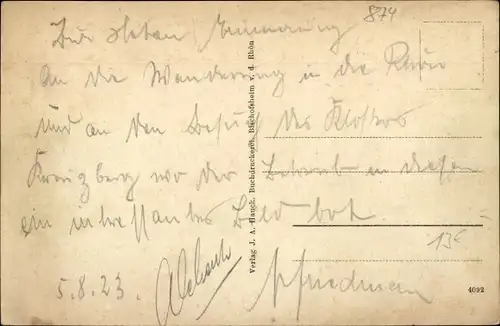 874
Zur steten Erinnerung
An die Wanderung in die Rhön
und an den Besuch des Klosters
Kreuzberg wo der Betrieb in diesen
ein interessantes Bild bot.
5.8.23.
Friedman
13€
Verlag J. A. Haugk, Buchdruckerei, Bischofsheim v. d. Rhön
4092